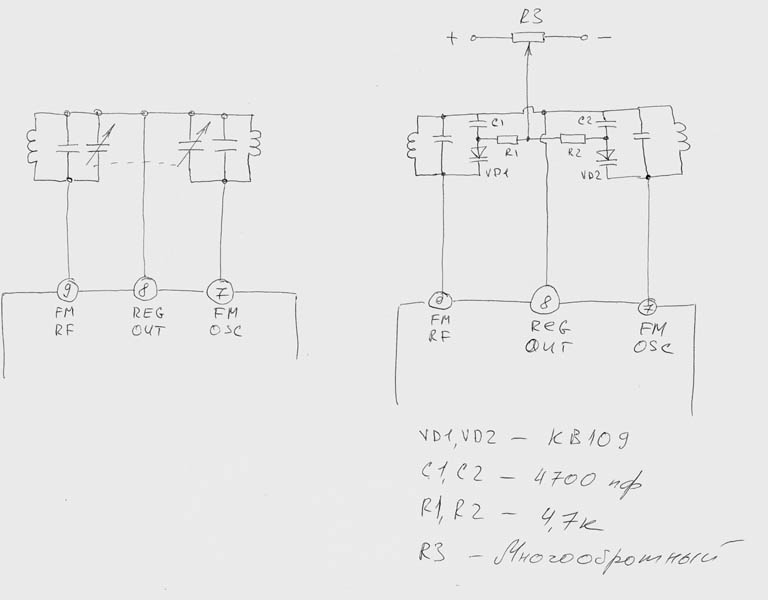 R3
+ −
C1 C2
R1 R2
VD1 VD2
9 8 7
FM REG FM
RF OUT OSC
9 8 7
FM REG FM
RF OUT OSC
VD1, VD2 – КВ109
C1, C2 – 4700 пф
R1, R2 – 4,7к
R3 – Многообротный